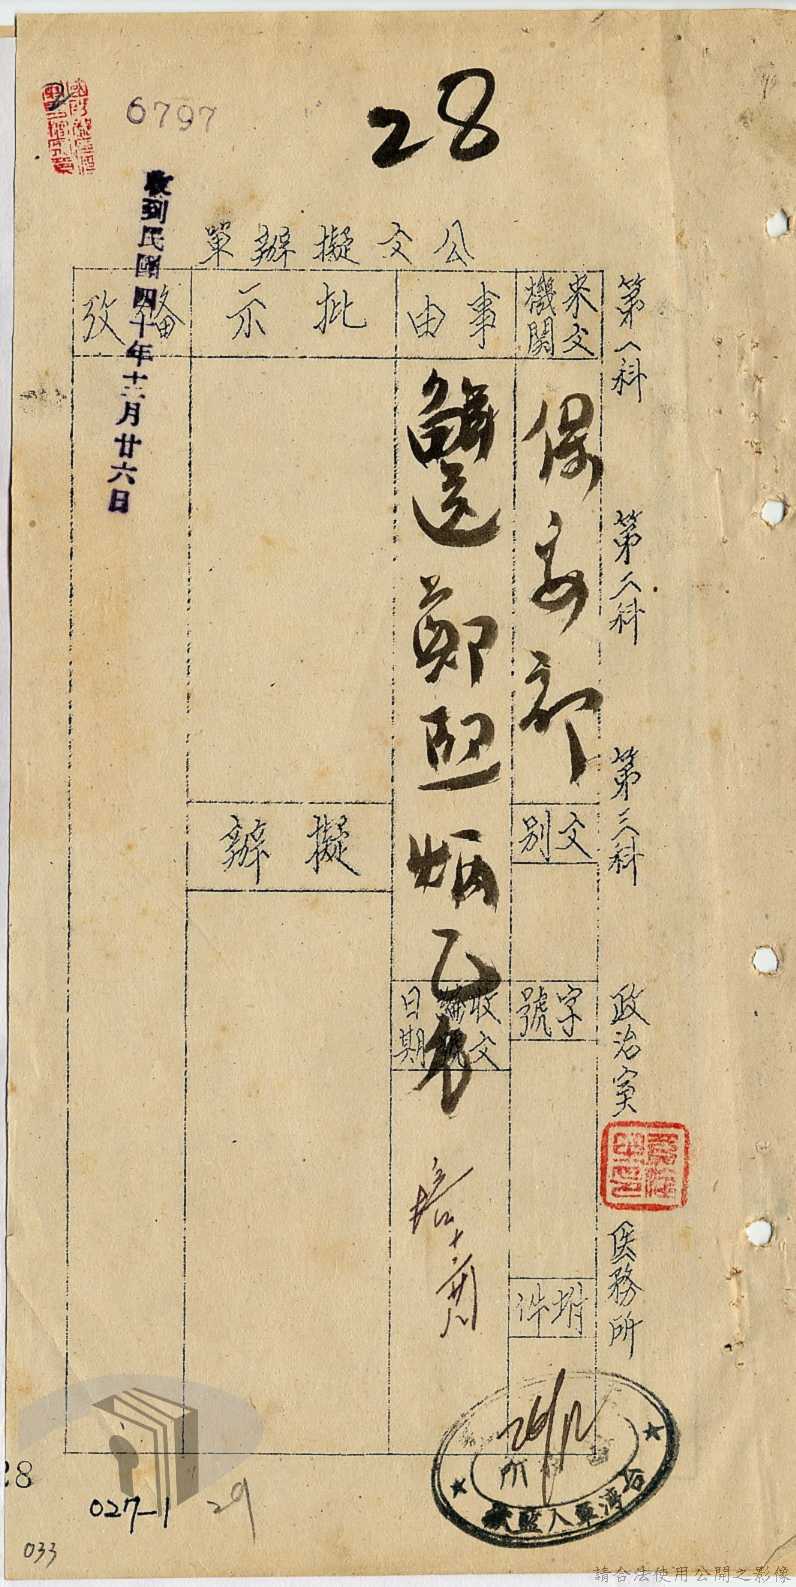 28
6797
收到民國四十年十二月廿六日
公文擬辦單
第一科
第二科
第三科
政治室
医務所
來文機關
保安部
文別
字號
附件
事由
解送鄭熙炳乙名
收文
日期
批示
擬辦
備攷
26/12
台灣軍人監獄
所
28
027-1
29
033
請合法使用公開之影像